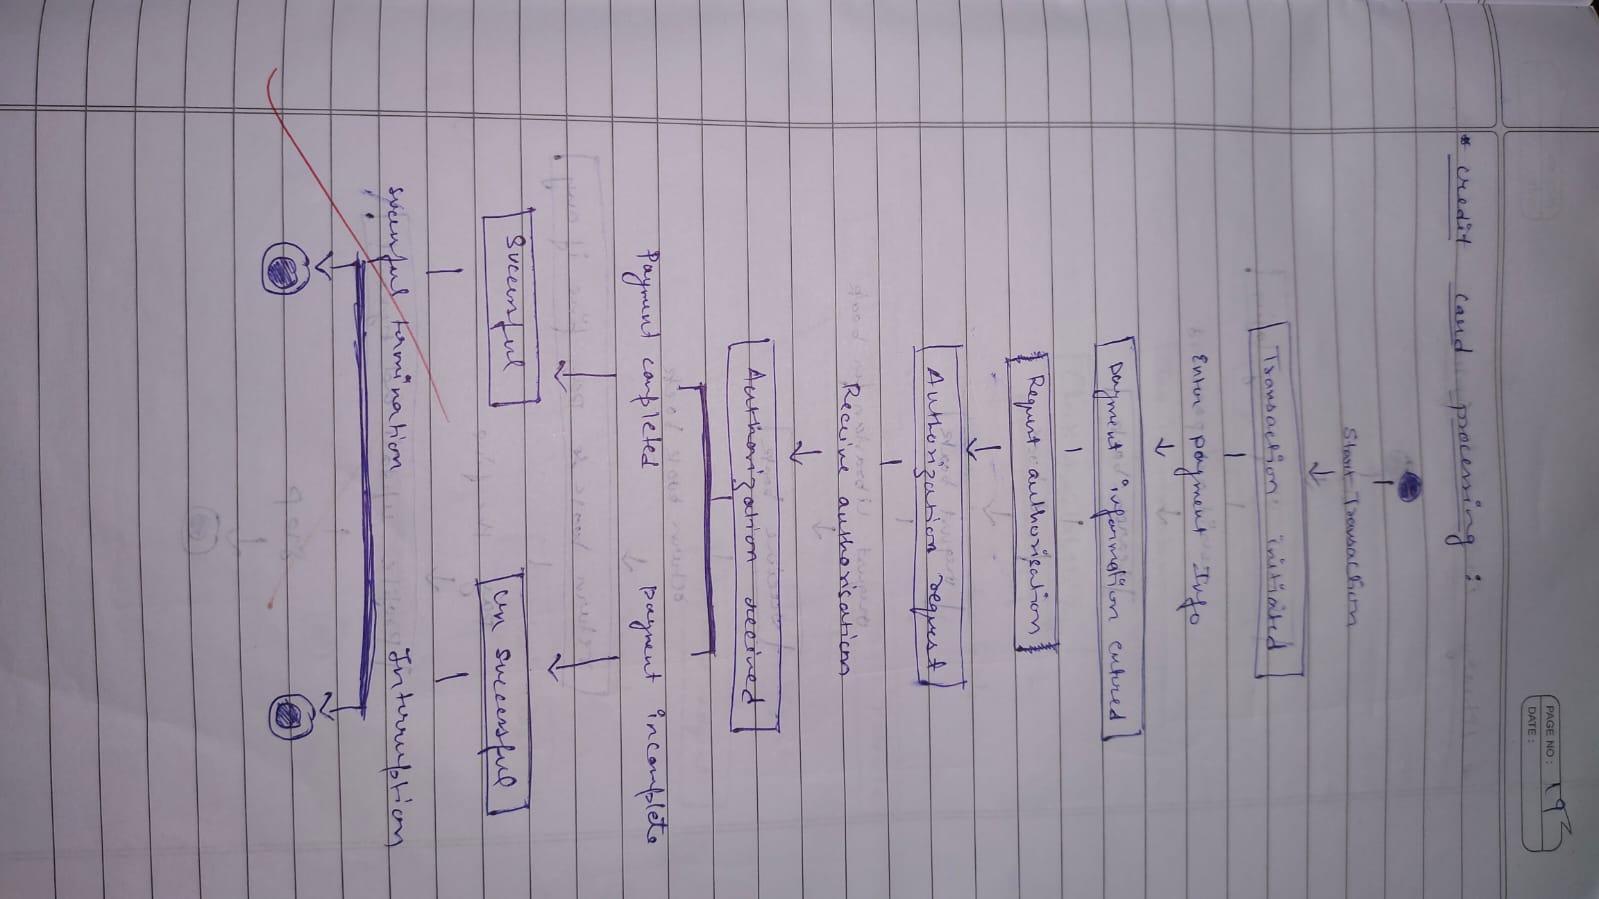 PAGE NO:
DATE:
* credit card processing :
Start Transaction
Transaction initiated
Enter payment Info
Payment information entered
Request authorisation
Authorization request
Receive authorisation
Authorization received
Payment completed payment incomplete
Successful Un successful
successful termination Interruption